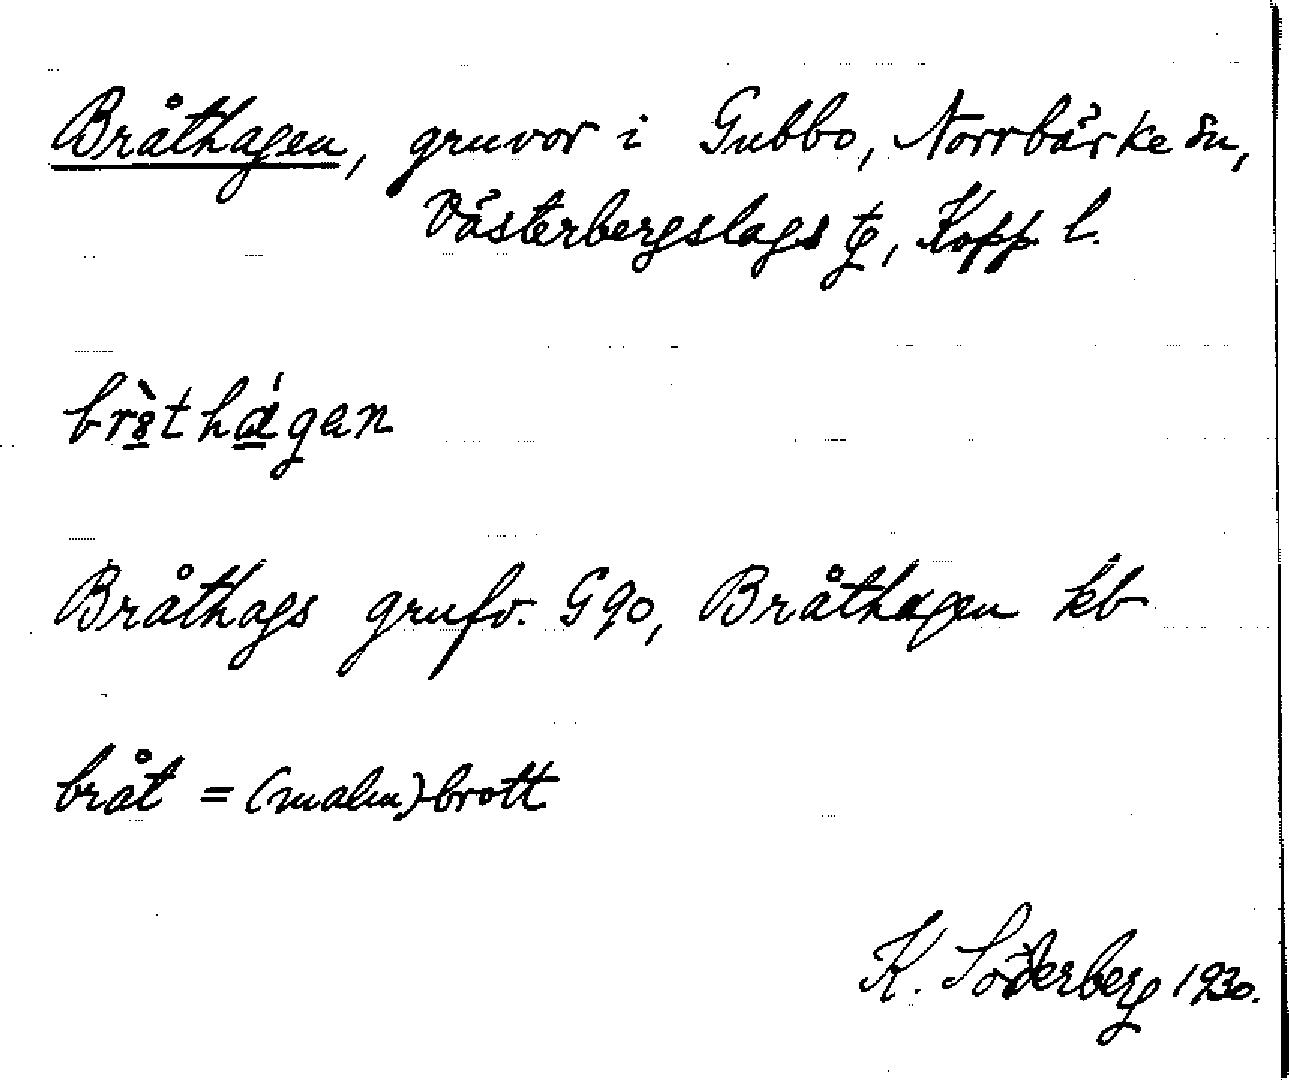 Bråthagen, gruvor i Gubbo, Norrbärke sn,
Västerbergslags tg, Kopp. l.
bråthagen
Bråthags grufv. G90, Bråthagen kb
bråt = (malm)brott
K. Söderberg 1930.